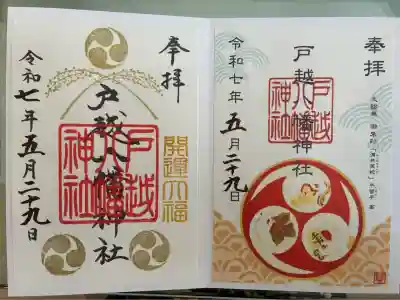 奉拝
戸越八幡神社
戸越八幡神社
開運大福
令和七年五月二十九日
奉拝
戸越八幡神社
戸越八幡神社
令和七年五月二十九日